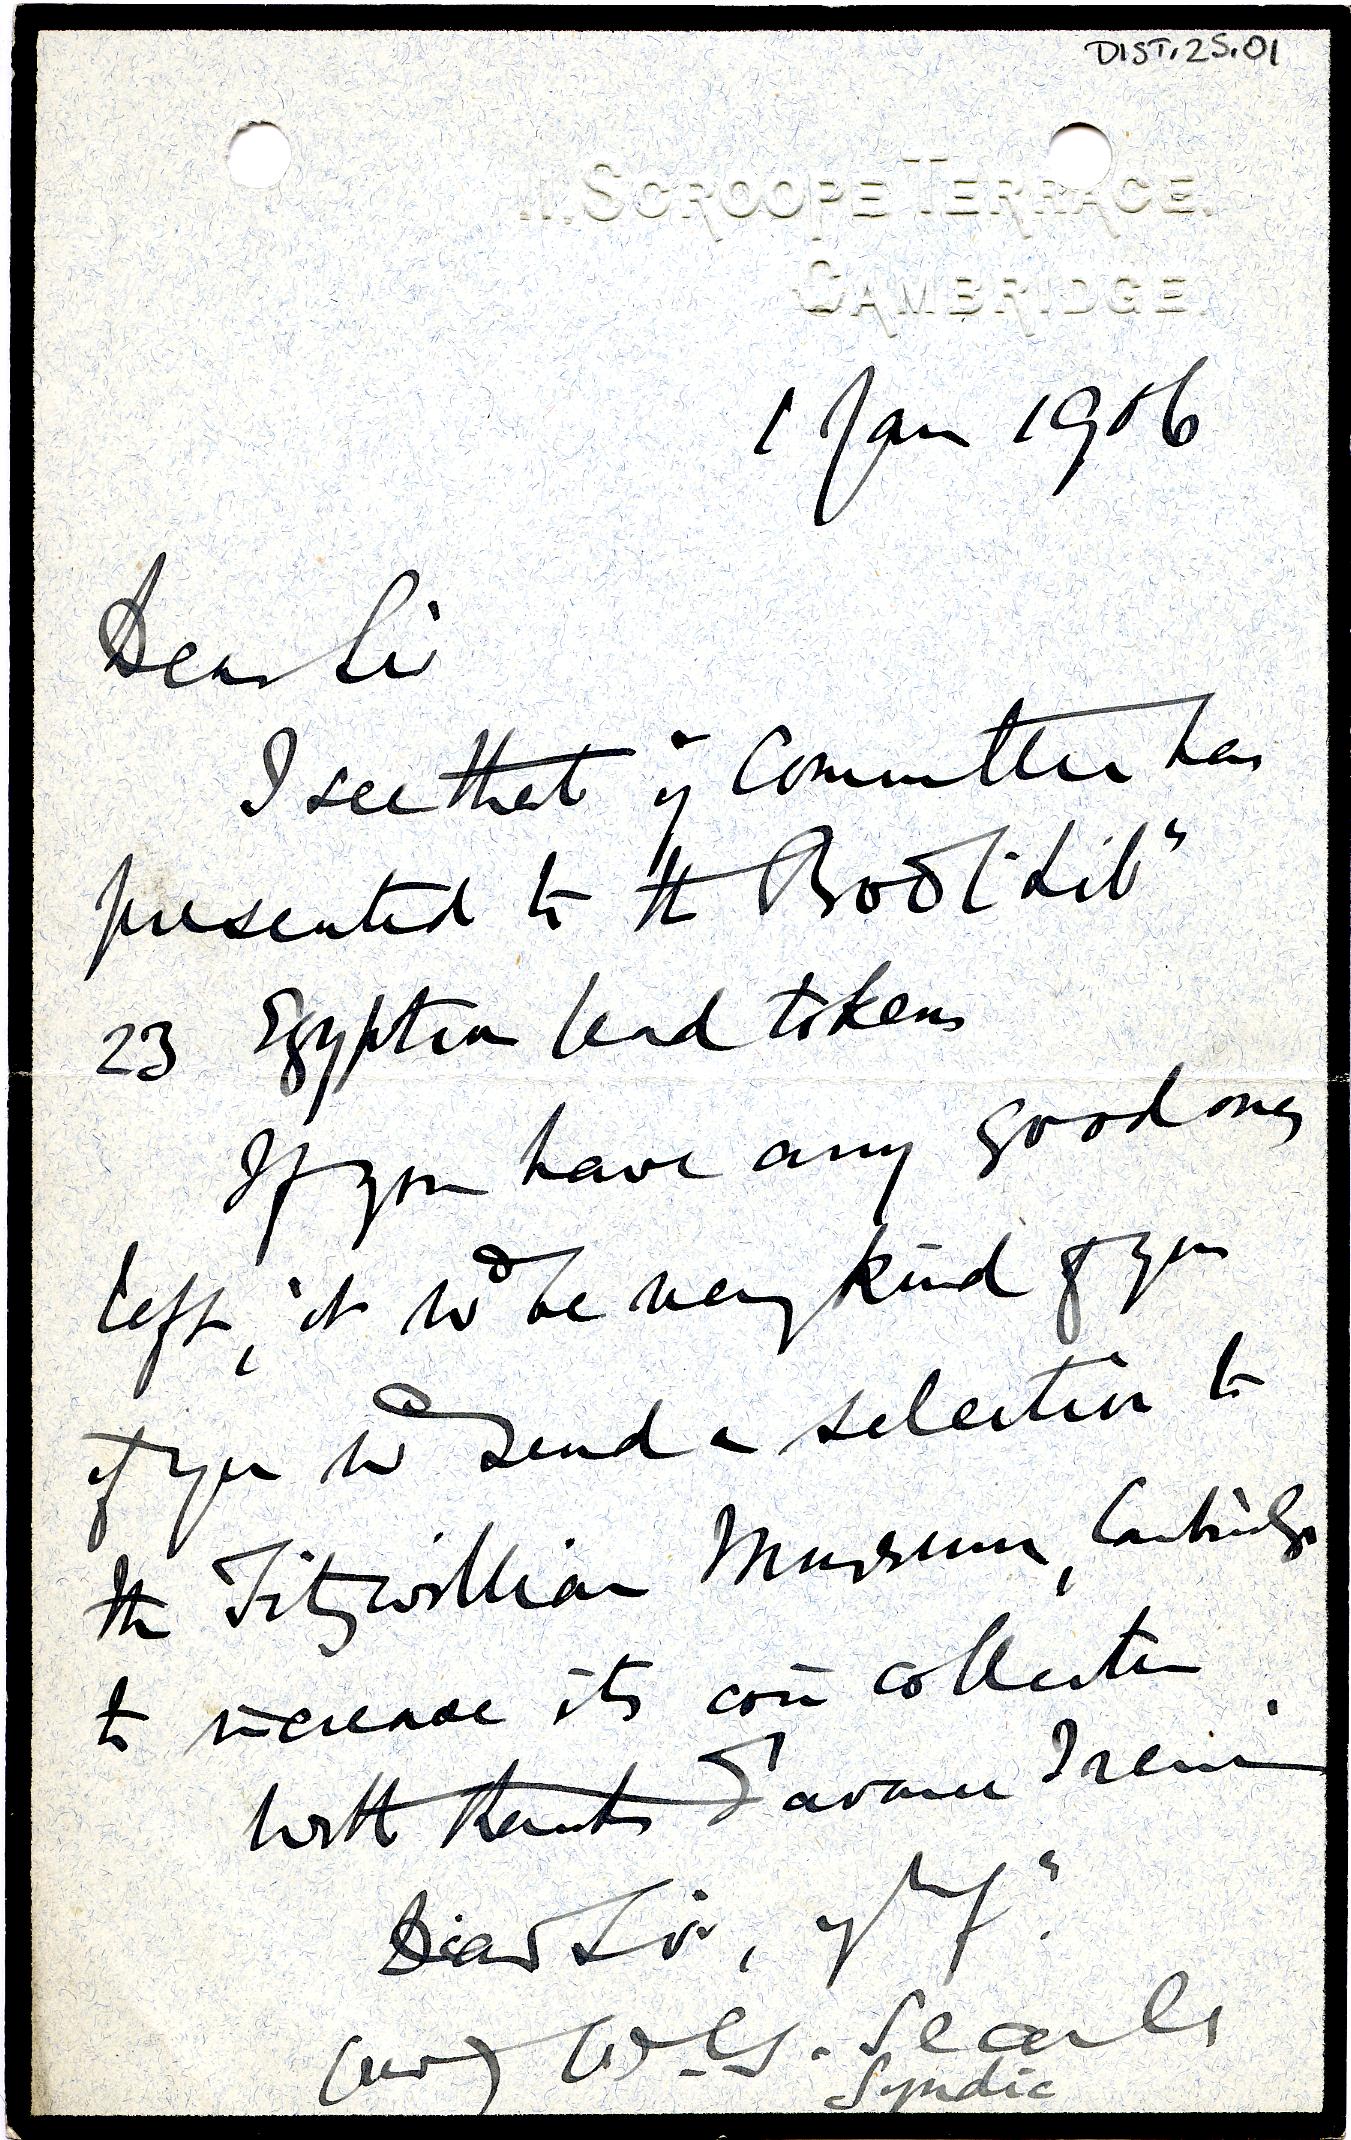 DIST.25.01
11, SCROOPE TERRACE,
CAMBRIDGE.
1 Jan 1906
Dear Sir
I see that yr Committee has
presented to the Bodl. Liby
23 Egyptian lead tokens
If you have any good ones
left, it wd be very kind of you
if you wd send a selection to
the Fitzwilliam Museum, Cambridge
to increase its coin collection.
With thanks I remain
Dear Sir, yrs
(Rev) W. G. Searle
Syndic